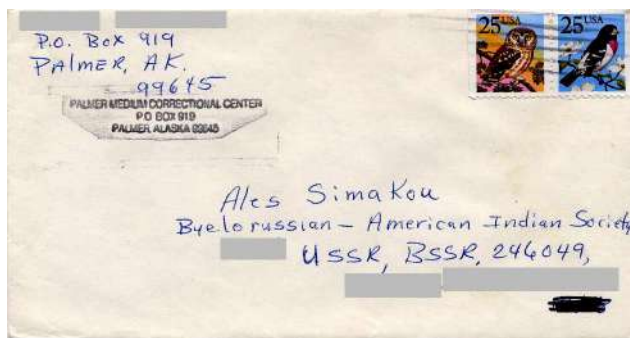 P.O. Box 919
PALMER, AK.
99645
PALMER MEDIUM CORRECTIONAL CENTER
P.O. BOX 919
PALMER, ALASKA 99645
25 USA
25 USA
Ales Simakou
Byelorussian – American Indian Society
USSR, BSSR, 246049,